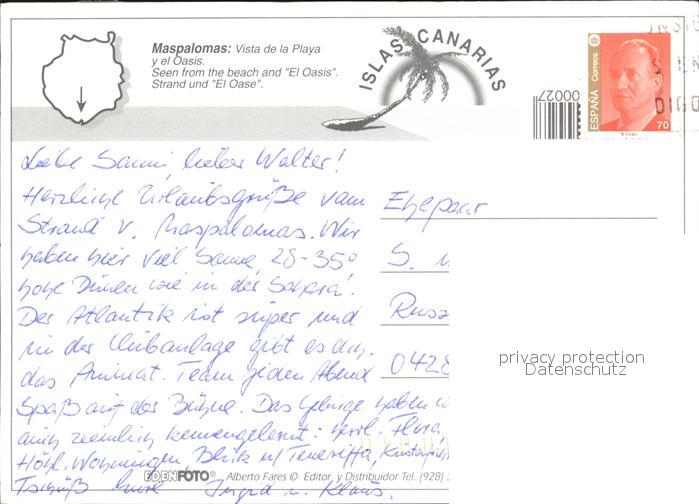 Maspalomas: Vista de la Playa
y el Oasis.
Seen from the beach and "El Oasis".
Strand und "El Oase".
ISLAS CANARIAS
00027
ESPAÑA Correos
70
DIGO
Liebe Sanni, lieber Walter!
Herzliche Urlaubsgrüße vom
Strand v. Maspalomas. Wir
haben hier viel Sonne, 28-35°
hohe Dünen wie in der Sahara!
Der Atlantik ist super und
in der Clubanlage gibt es durch
das Animat. Team jeden Abend
Spaß auf der Bühne. Das Gebirge haben
auch ziemlich kennengelernt: herrl. Flora,
Höhl. Wohnungen, Blick n/Teneriffa,
Tschüß Ingrid u. Klaus.
Ehepaar
S.
Russ
0428
privacy protection
Datenschutz
EDENFOTO® Alberto Fares © Editor y Distribuidor Tel. (928)